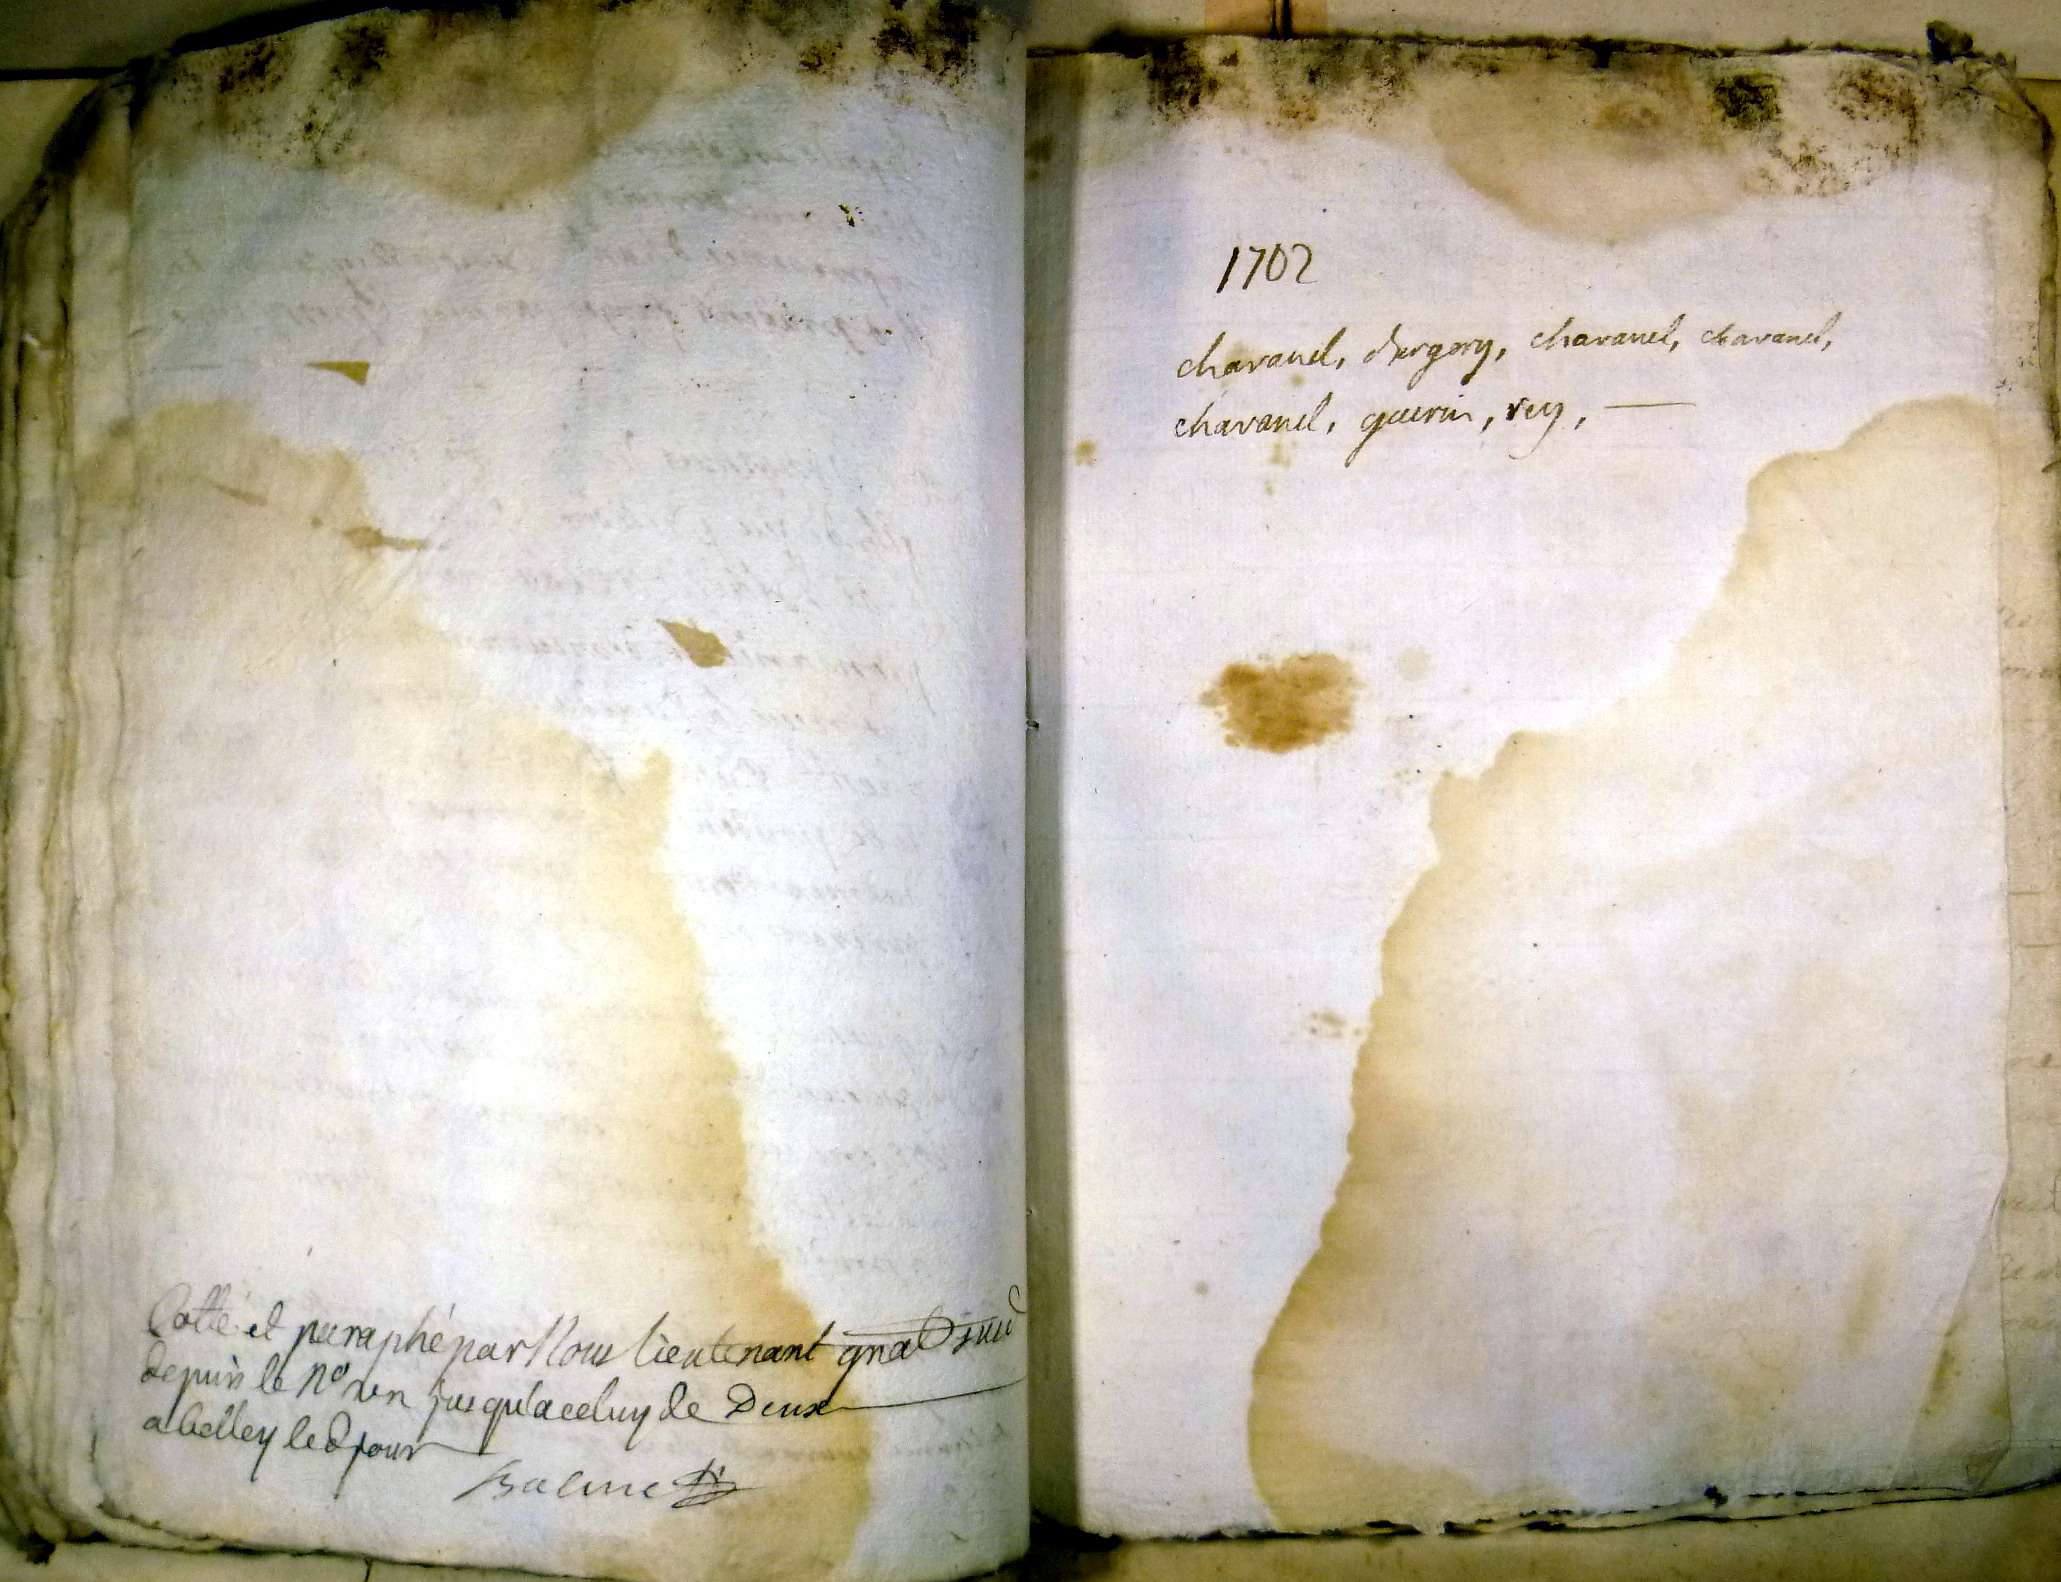 Cotté et paraphé par Nous lieutenant gnal
depuis le No un jusqu'a celuy de Deux
a belley led jour
Balme
1702
chavanel, dergory, chavanel, chavanel,
chavanel, guerin, rey,